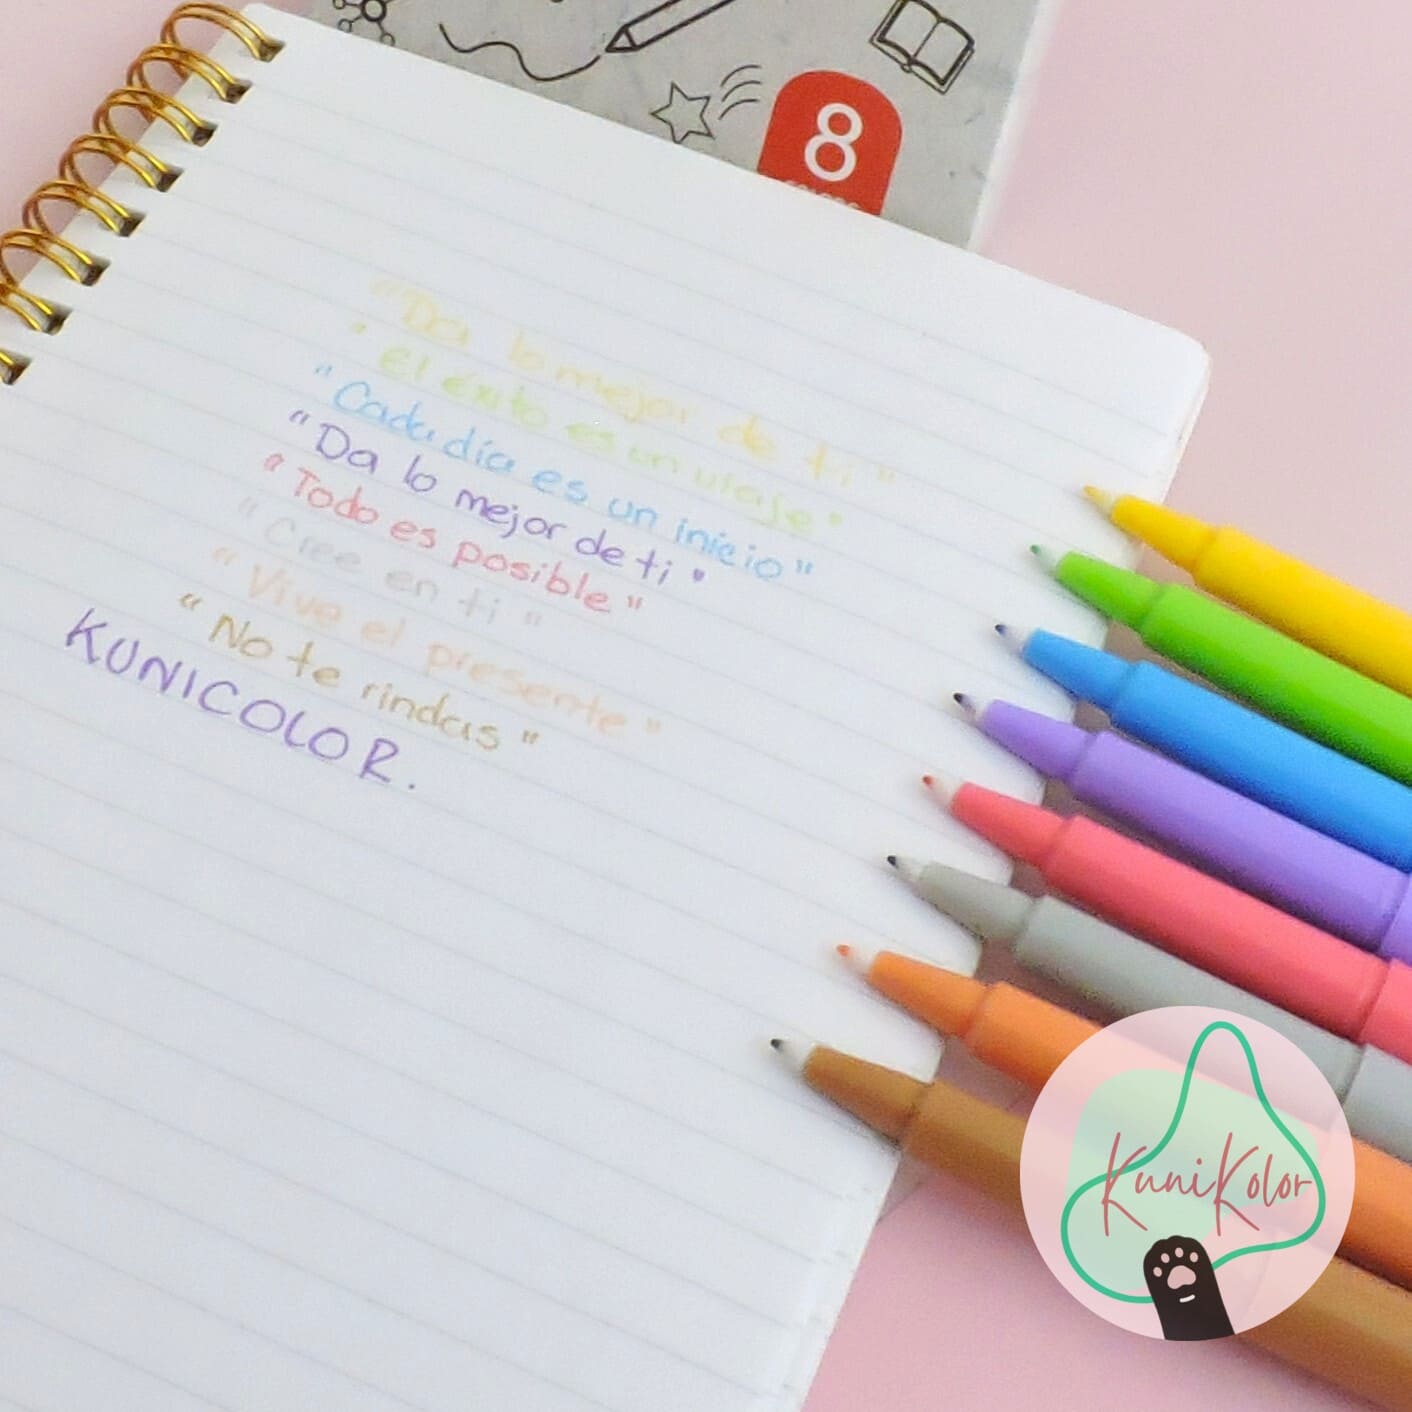 8
"Da lo mejor de ti"
"El éxito es un viaje"
"Cada día es un inicio"
"Da lo mejor de ti"
"Todo es posible"
"Cree en ti"
"Vive el presente"
"No te rindas"
KUNICOLOR.
KuniKolor